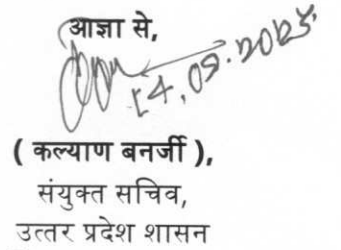 आज्ञा से,
14.09.2023
( कल्याण बनर्जी ),
संयुक्त सचिव,
उत्तर प्रदेश शासन